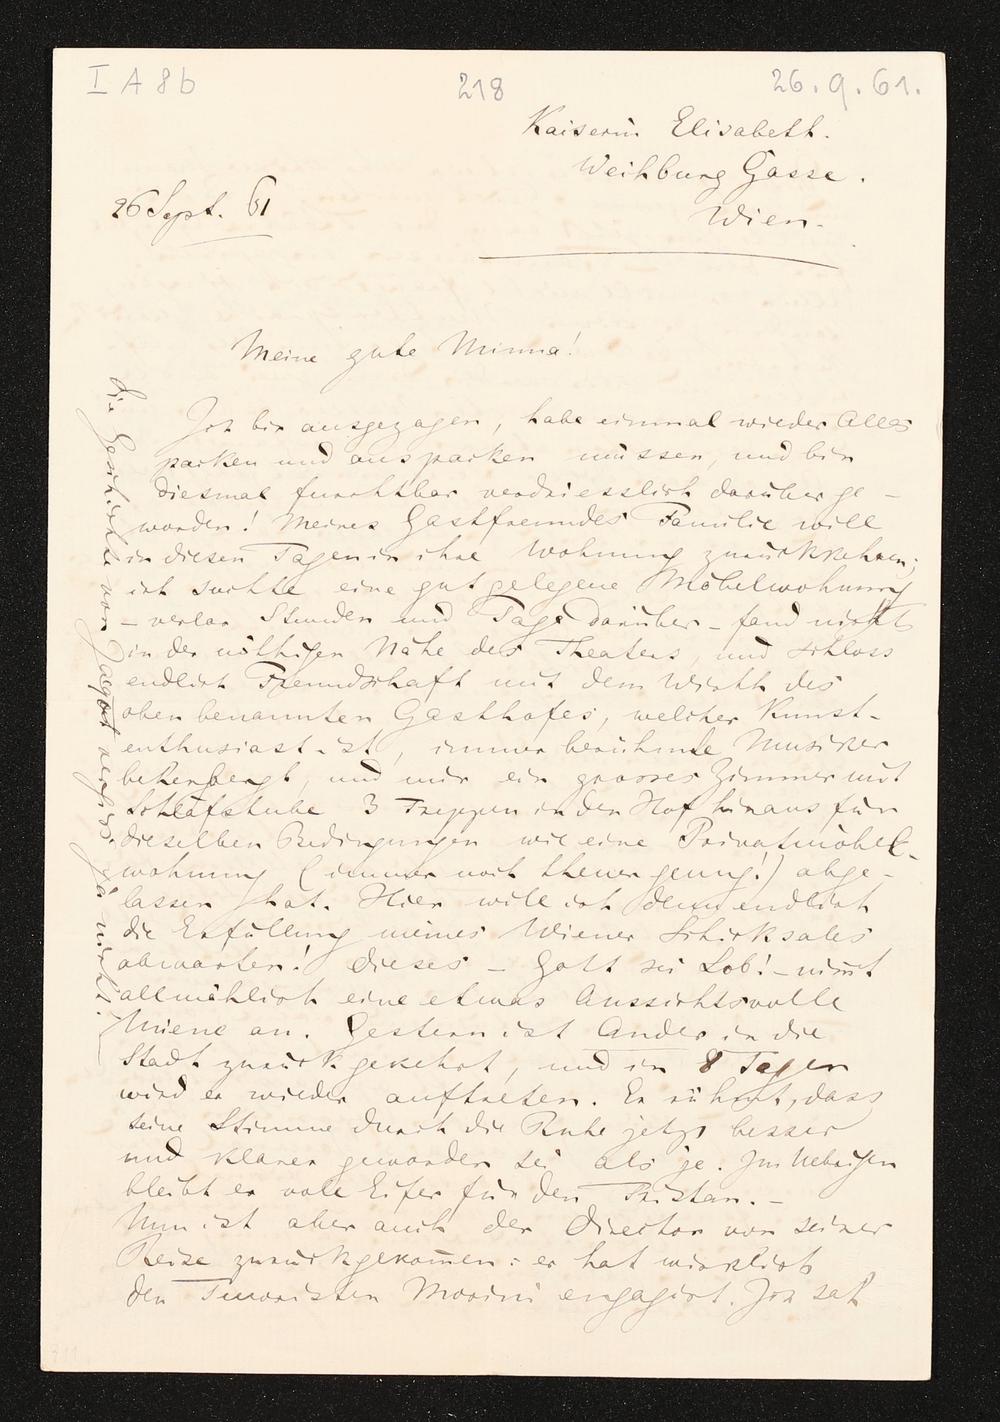 I A 8b 218 26.9.61.
Kaiserin Elisabeth.
Weihburg Gasse.
Wien.
26 Sept. 61
Meine gute Minna!
Ich bin ausgezogen, habe einmal wieder Alles
packen und auspacken müssen, und bin
diesmal furchtbar verdriesslich darüber ge-
worden! Meines Gastfreundes Familie will
in diesen Tagen in ihre Wohnung zurückkehren;
ich suchte eine gut gelegene Möbelwohnung
– verlor Stunden und Tage darüber – fand nichts
in der nöthigen Nähe des Theaters, und schloss
endlich Freundschaft mit dem Wirth des
oben benannten Gasthofes, welcher Kunst-
enthusiast ist, immer berühmte Musiker
beherbergt, und mir ein grosses Zimmer mit
Schlafstube 3 Treppen in den Hof hinaus für
dieselben Bedingungen wie eine Privatmöbel-
wohnung (immer noch theuer genug!) abge-
lassen hat. Hier will ich denn endlich
die Erfüllung meines Wiener Schicksales
abwarten! Dieses – Gott sei Lob! – nimt
allmählich eine etwas Aussichtsvolle
Miene an. Gestern ist Ander in die
Stadt zurückgekehrt, und in 8 Tagen
wird er wieder auftreten. Er rühmt, dass
seine Stimme durch die Ruhe jetzt besser
und klarer geworden sei als je. Im Uebrigen
bleibt er vole Eifer für den Tristan. –
Nun ist aber auch der Director von seiner
Reise zurückgekomen: er hat wirklich
den Tenoristen Morini engagirt. Ich sah
Die Geschichte von Jacquot vergiss ja nicht!